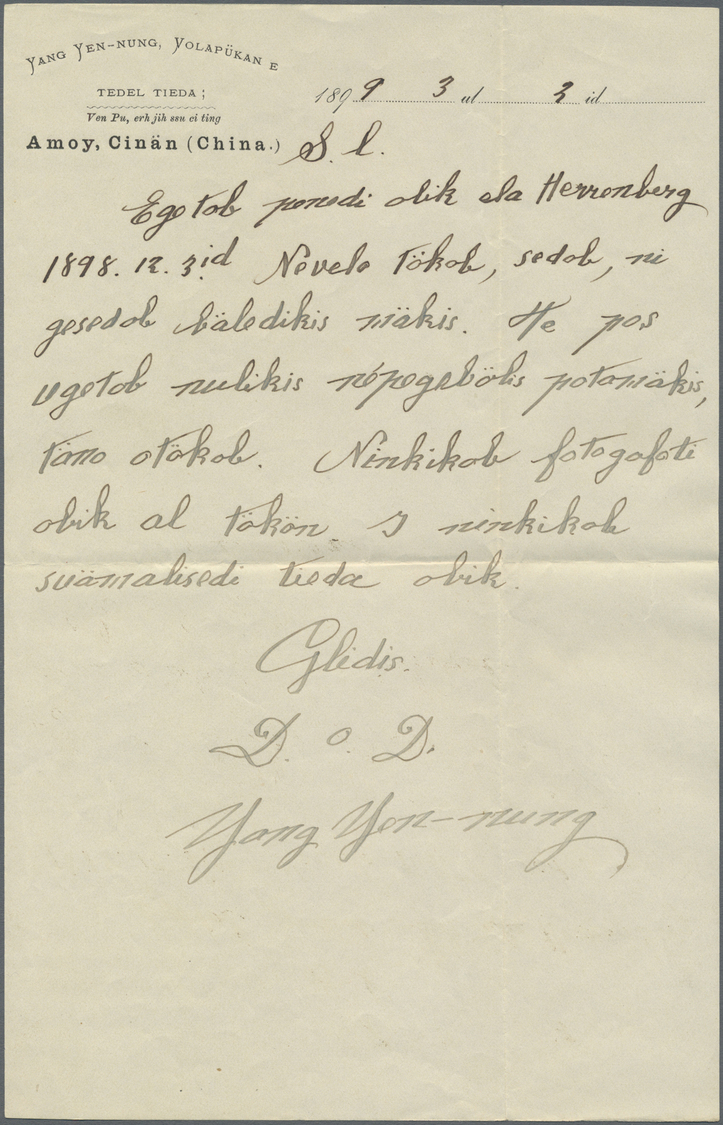 Yang Yen-nung, Volapükan e
tedel tieda;
Ven Pu, erh jih ssu ci ting
Amoy, Cinän (China.)
1899 3 ul 3 id
S. l.
Egetob penedi olik ela Herrenberg
1898. 12. 3id Nevelo tökob, sedob, ni
gesedob bäledikis mäkis. He pos
ugetob nulikis nepegebölis potamäkis,
täno otökob. Ninkikob fotogafoti
obik al tökön
ninkikob
suämalisedi tieda obik.
Glidis.
D. o. D.
Yang Yen-nung